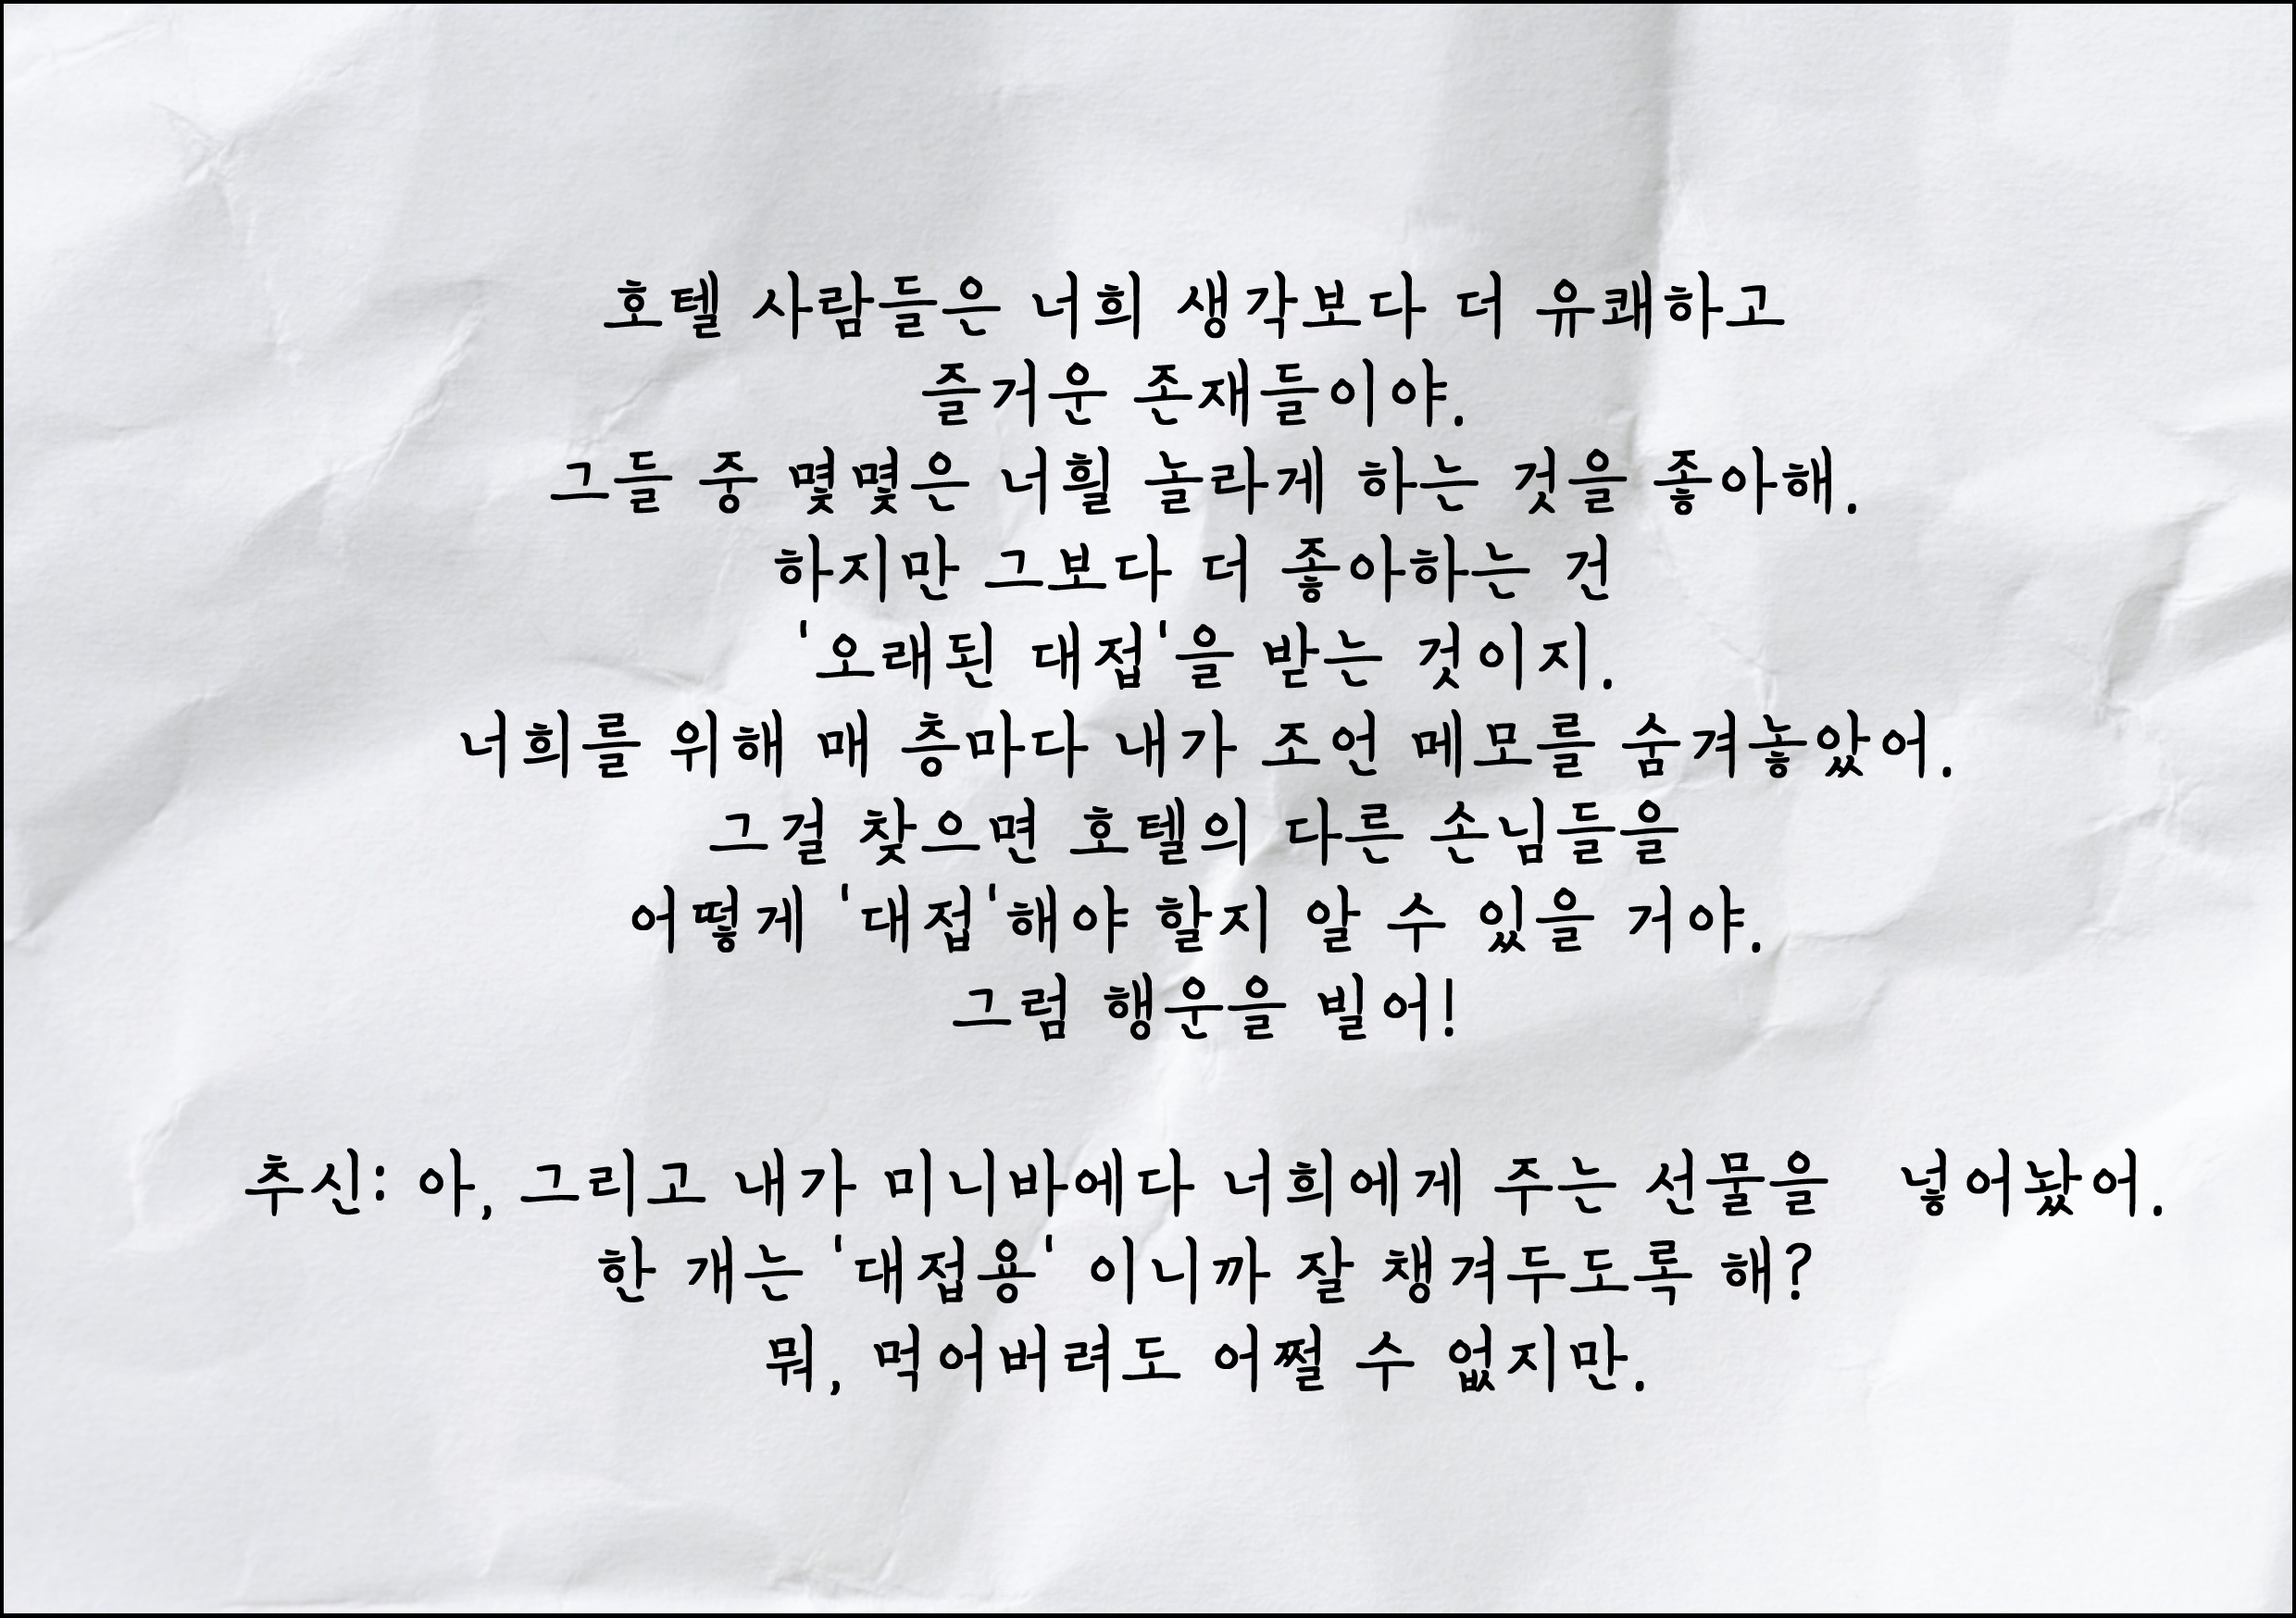 호텔 사람들은 너희 생각보다 더 유쾌하고
즐거운 존재들이야.
그들 중 몇몇은 너흴 놀라게 하는 것을 좋아해.
하지만 그보다 더 좋아하는 건
'오래된 대접'을 받는 것이지.
너희를 위해 매 층마다 내가 조언 메모를 숨겨놓았어.
그걸 찾으면 호텔의 다른 손님들을
어떻게 '대접'해야 할지 알 수 있을 거야.
그럼 행운을 빌어!
추신: 아, 그리고 내가 미니바에다 너희에게 주는 선물을 넣어놨어.
한 개는 '대접용' 이니까 잘 챙겨두도록 해?
뭐, 먹어버려도 어쩔 수 없지만.